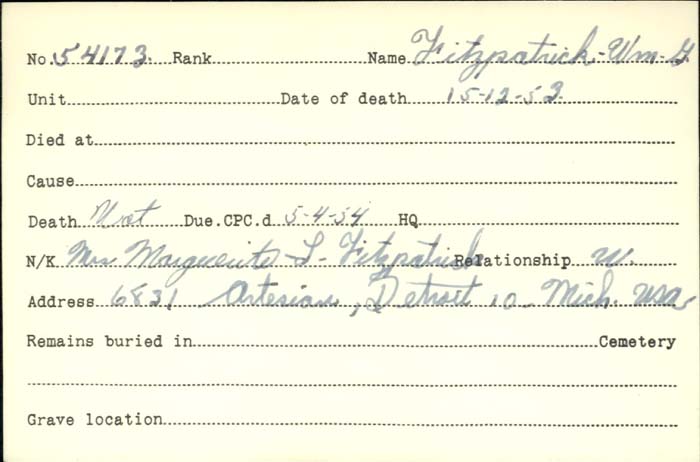 No. 54173 Rank Name Fitzpatrick-Wm-G.
Unit Date of death 15-12-53.
Died at
Cause
Death Not Due.CPC.d 5-4-54 HQ
N/K Mrs Marguerite L- Fitzpatrick Relationship W.
Address 6831 Artesian, Detroit 10 Mich. USA
Remains buried in Cemetery
Grave location